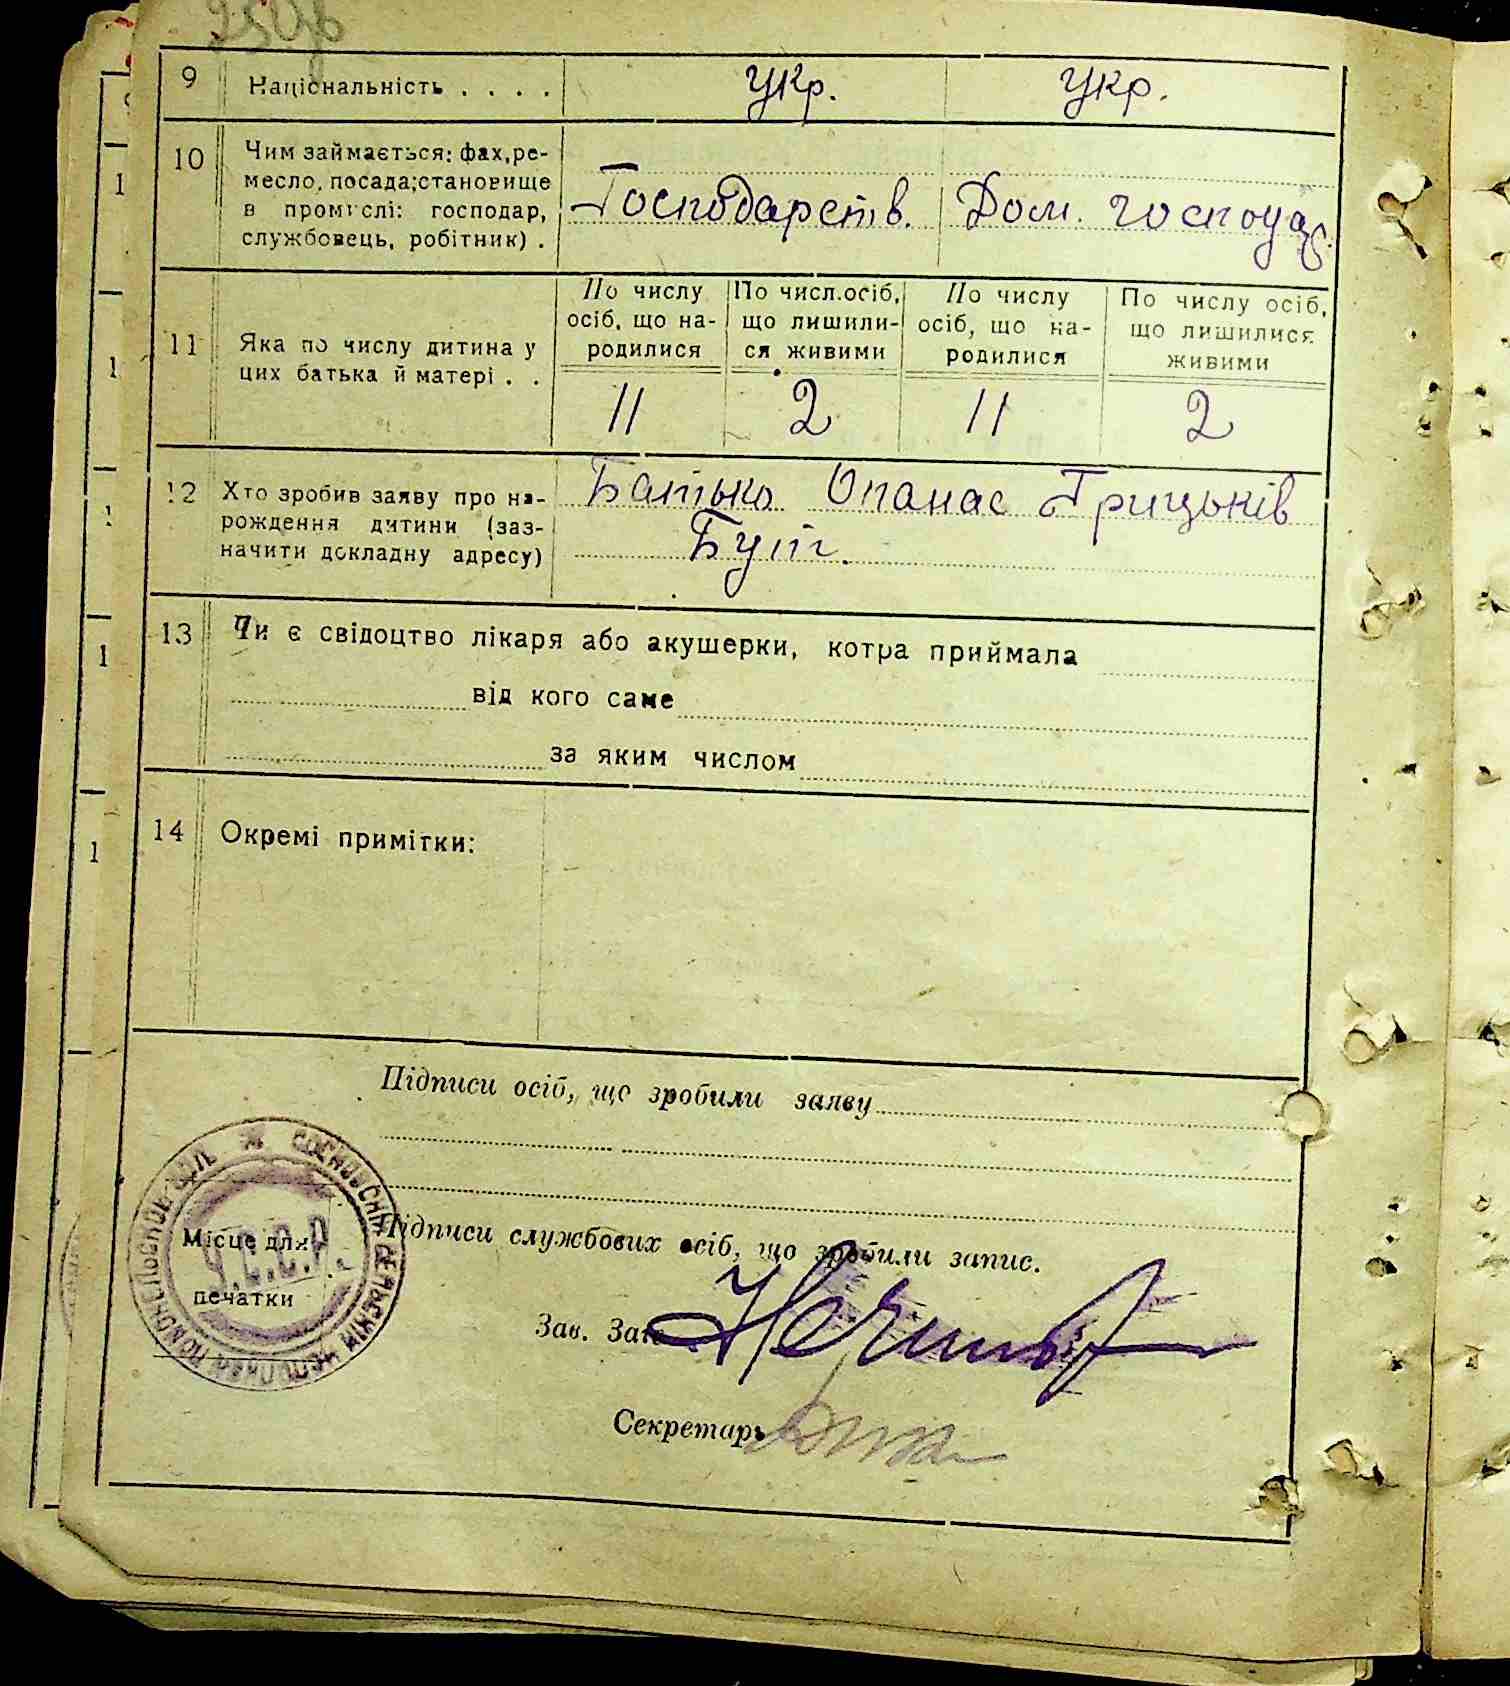 9 Національність . . . . укр. укр.
10 Чим займається: фах, ре-
месло, посада; становище
в промислі: господар,
службовець, робітник) .
Господарств. Дом. господар.
По числу осіб, що на-родилися
По числ. осіб, що лишили-ся живими
По числу осіб, що на-родилися
По числу осіб, що лишилися живими
11 Яка по числу дитина у
цих батька й матері . .
11 2 11 2
12 Хто зробив заяву про на-
рождення дитини (заз-
начити докладну адресу)
Батько Опанас Грицьків
13 Чи є свідоцтво лікаря або акушерки, котра приймала
від кого саме
за яким числом
14 Окремі примітки:
Підписи осіб, що зробили заяву
Підписи службових осіб, що зробили запис.
Місце для
печатки
У.С.С.Р.
Зав. Заг
Секретарь